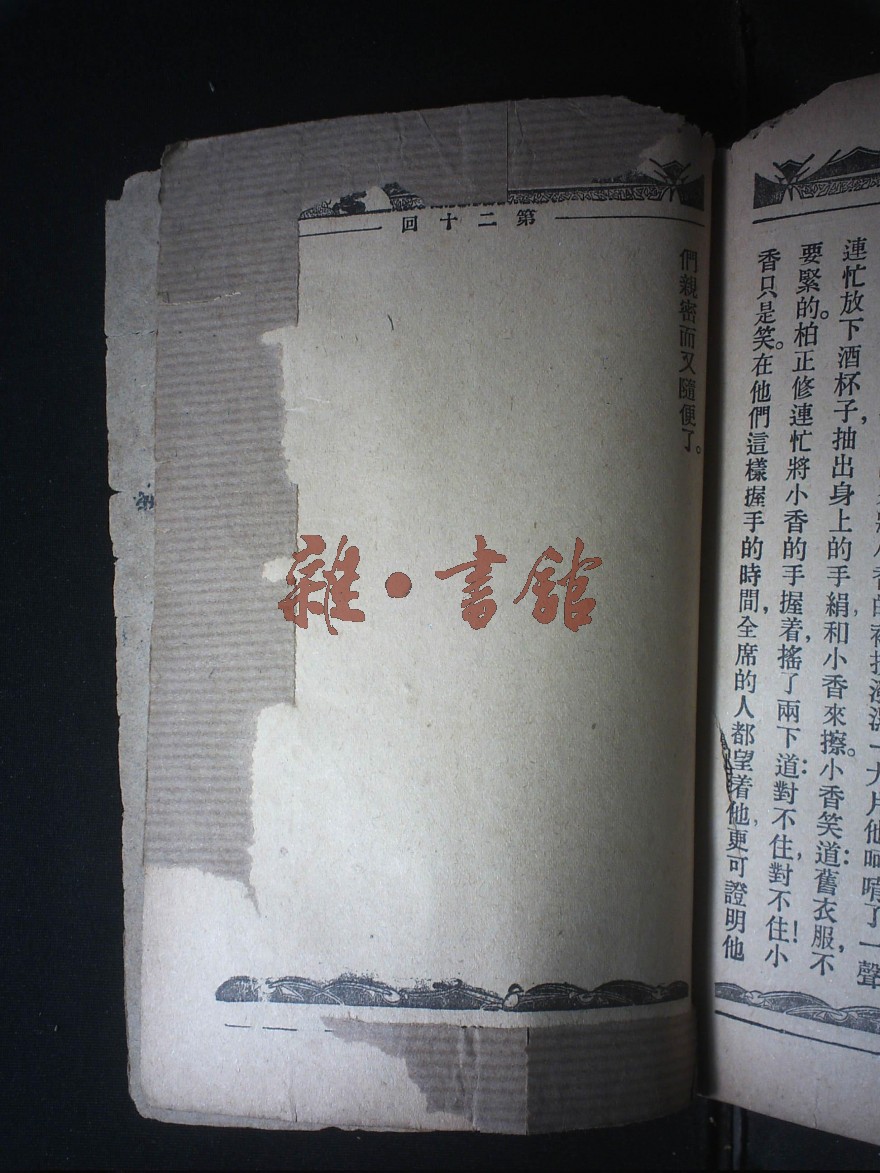 大片他啊唷了一聲
連忙放下酒杯子，抽出身上的手絹，和小香來擦。小香笑道：舊衣服，不
要緊的。柏正修連忙將小香的手握着，搖了兩下道：對不住，對不住！小
香只是笑。在他們這樣握手的時間，全席的人都望着他，更可證明他
第二十回
們親密而又隨便了。
雜·書館